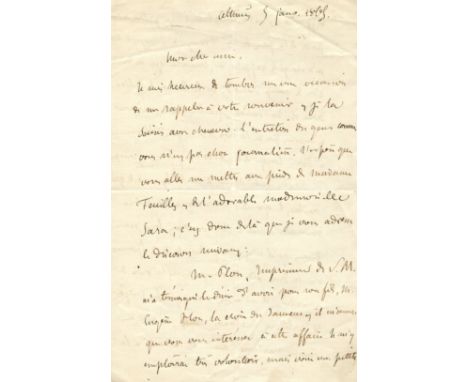 5 janv.
Mon cher ami.
Je suis heureux de tomber sur une occasion
de me rappeler à votre souvenir & je la
saisis aux cheveux. L'entretien des gens comme
vous n'est pas chose journalière.
vous allez me mettre aux pieds de madame
Feuillet & de l'adorable mademoiselle
Sara; c'est donc de là que je vous adresse
le discours suivant:
M. Plon, Imprimeur de S. M.
m'a témoigné le désir d'avoir pour son fils, M.
Eugène Plon, la croix du
que vous vous intéressez à cette affaire. Je m'y
très volontiers, mais voici une petite